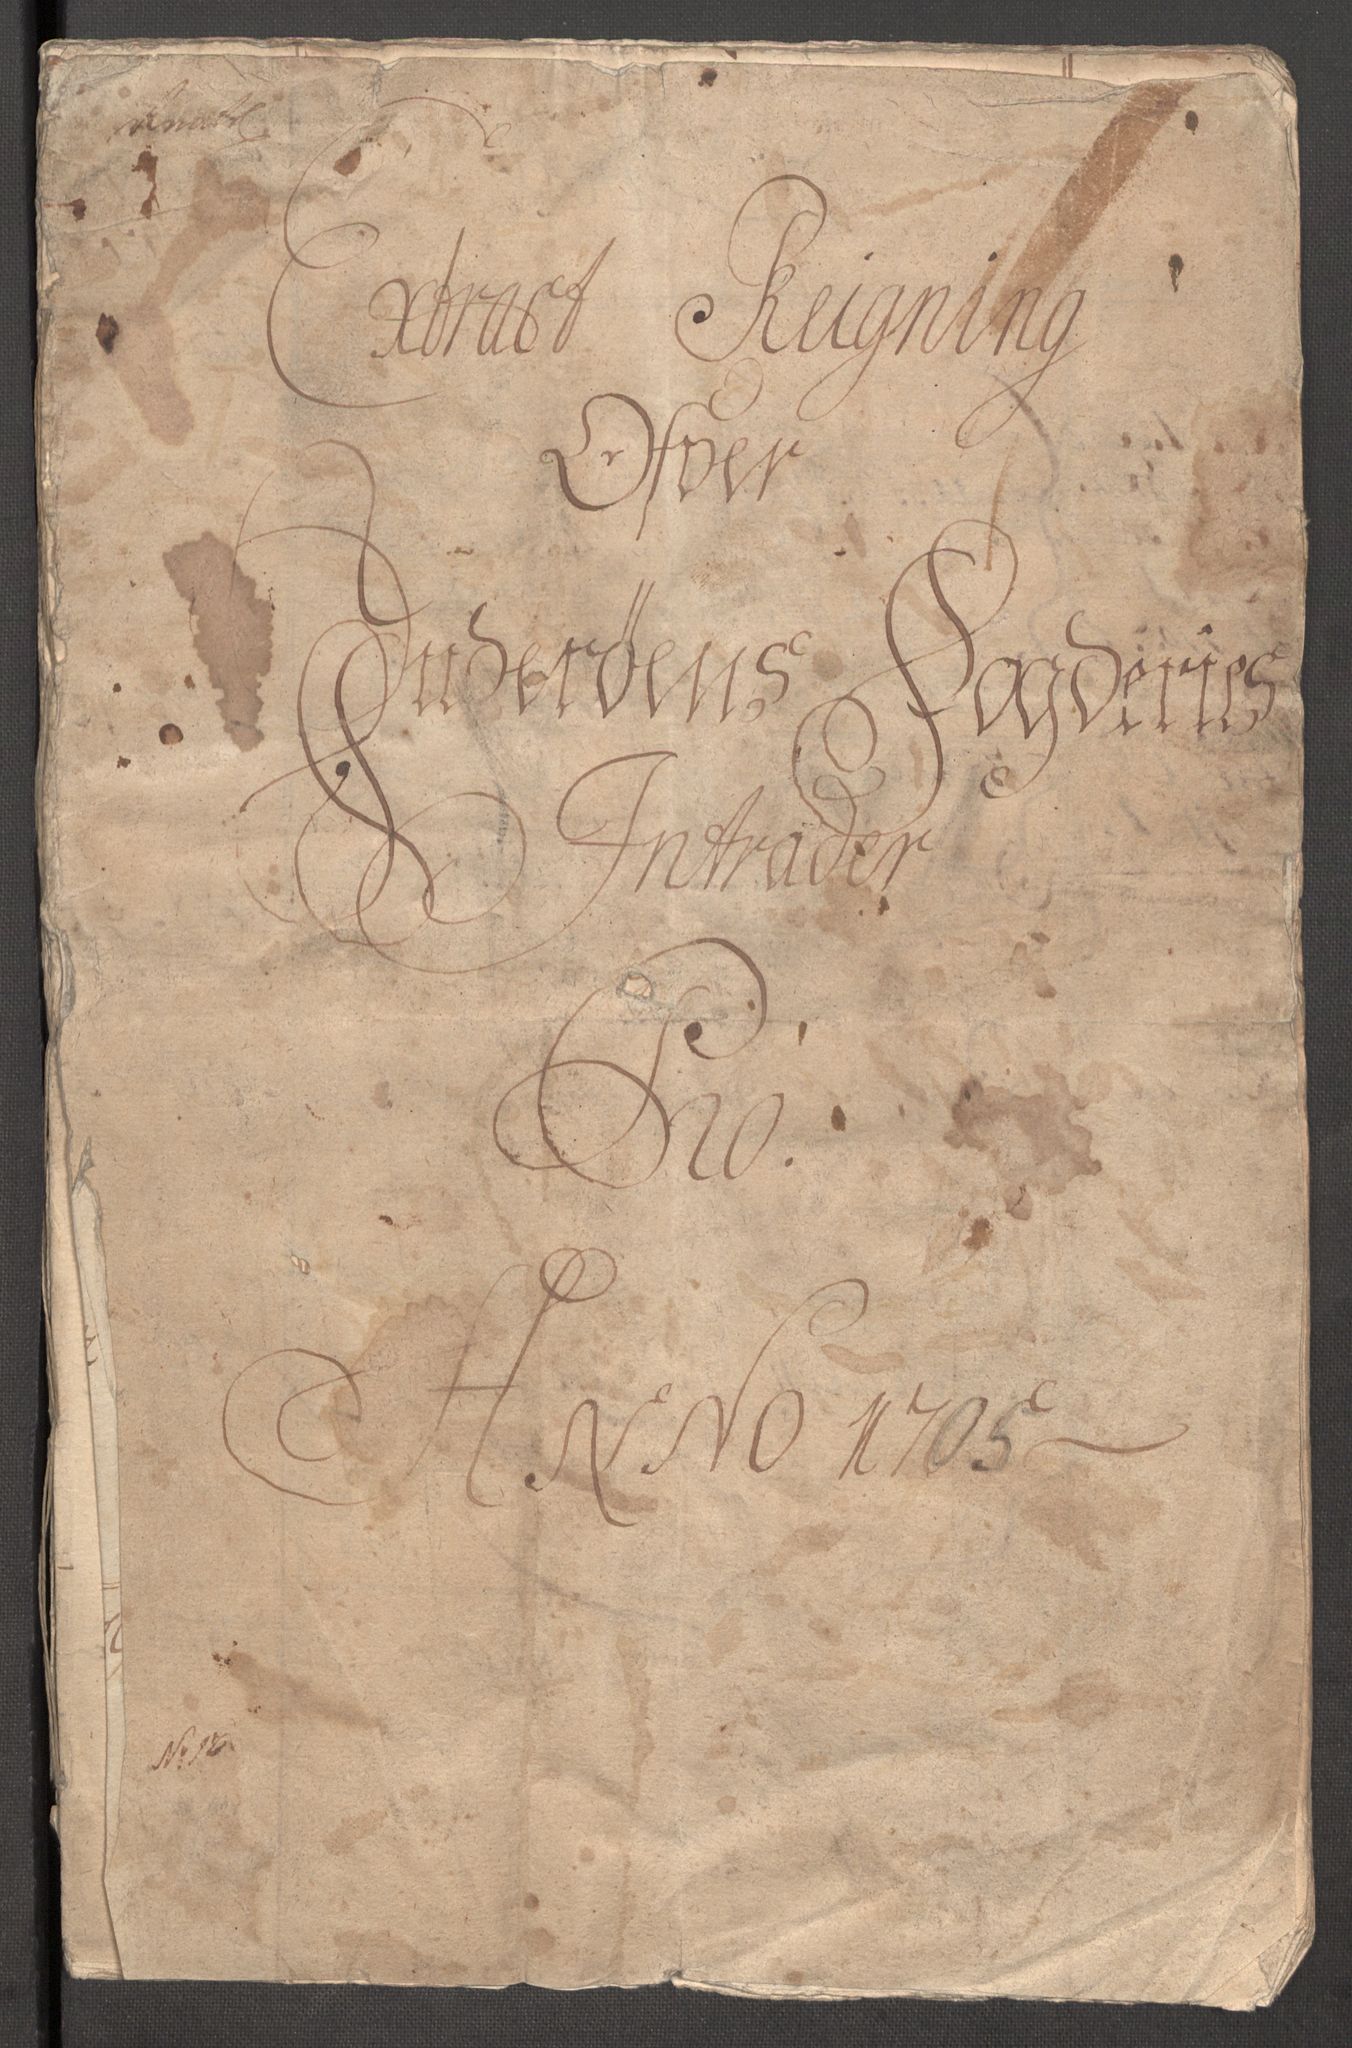 Extract Reigning
Ofver
Inderöens Fogderies
Intrader
Pro.
Anno 1705
No 12